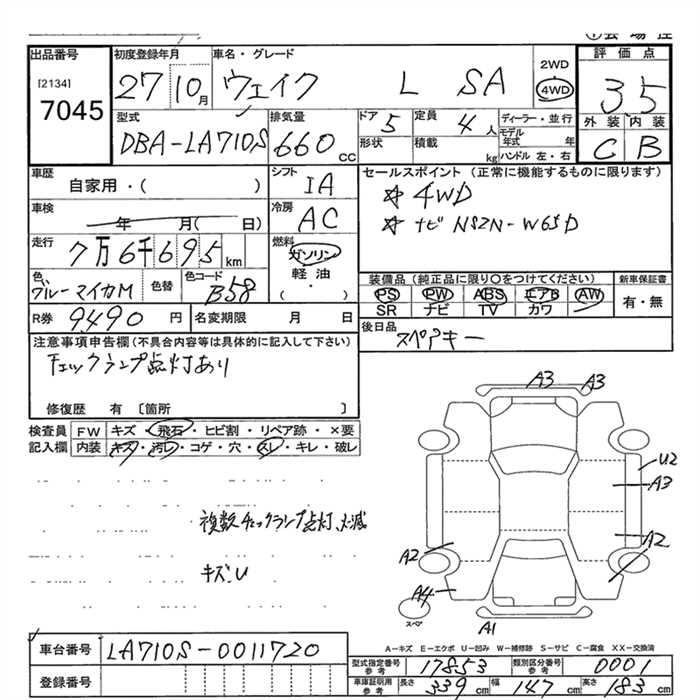 出品番号 初度登録年月 車名・グレード 2WD 評価点
[2134] 7045 27 10月 ウェイク L SA 4WD 3.5
型式 排気量 ドア 5 定員 4人 ディーラー・並行 外装 内装
DBA-LA710S 660cc 形状 積載 kg モデル年式 年 C B
ハンドル 左・右
車歴 自家用・( ) シフト IA セールスポイント(正常に機能するものに限ります)
☆ 4WD
車検 年 月( 日) 冷房 AC ☆ ナビ NSZN-W65D
走行 7万6千695km 燃料 ガソリン 軽油 ・( )
装備品(純正品に限り○をつけてください) 新車保証書
色 ブルーマイカM 色替 色コード B58 PS PW ABS エアB AW 有・無
SR ナビ TV カワ
R券 9490円 名変期限 月 日 後日品
スペアキー
注意事項申告欄(不具合内容等は具体的に記入して下さい)
チェックランプ点灯あり
修復歴 有 [箇所 ]
検査員 FW キズ・飛石・ヒビ割・リペア跡・×要
記入欄 内装 キズ・汚レ・コゲ・穴・スレ・キレ・破レ
A3 A3
U2
A3
複数チェックランプ点灯
A2 A2 A2
キズ.U
A4
スペ
A1
A-キズ E-エクボ U-凹み W-補修跡 S-サビ C-腐食 XX-交換済
車台番号 LA710S-0011720
型式指定番号 参考 17853 類別区分番号 参考 0001
登録番号
車庫証明用 参考 長さ 339cm 幅 147cm 高さ 183cm